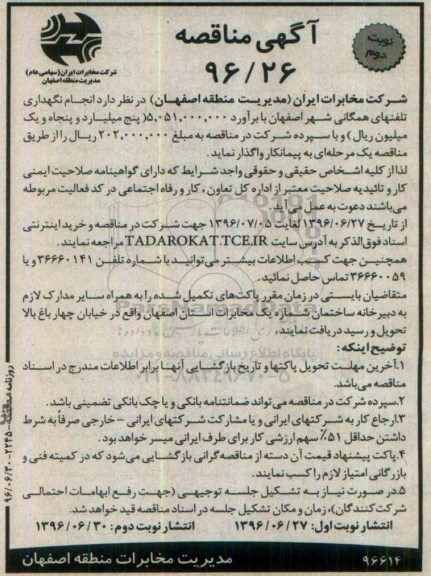 آگهی مناقصه
۹۶/۲۶
نوبت دوم
شرکت مخابرات ایران (سهامی عام)
مدیریت منطقه اصفهان
شرکت مخابرات ایران (مدیریت منطقه اصفهان) در نظر دارد انجام نگهداری
تلفنهای همگانی شهر اصفهان با برآورد ۵,۰۵۱,۰۰۰,۰۰۰ (پنج میلیارد و پنجاه و یک
میلیون ریال) و با سپرده شرکت در مناقصه به مبلغ ۲۰۲,۰۰۰,۰۰۰ ریال را از طریق
مناقصه یک مرحله‌ای به پیمانکار واگذار نماید.
لذا از کلیه اشخاص حقیقی و حقوقی واجد شرایط که دارای گواهینامه صلاحیت ایمنی
کار و تائیدیه صلاحیت معتبر از اداره کل تعاون، کار و رفاه اجتماعی در کد فعالیت مربوطه
می‌باشند دعوت به عمل می‌آید.
از تاریخ ۱۳۹۶/۰۶/۲۷ لغایت ۱۳۹۶/۰۷/۰۵ جهت شرکت در مناقصه و خرید اینترنتی
اسناد فوق‌الذکر به آدرس سایت TADAROKAT.TCE.IR مراجعه نمایند.
همچنین جهت کسب اطلاعات بیشتر می‌توانید با شماره تلفن ۳۶۶۶۰۱۴۱ و یا
۳۶۶۶۰۰۵۹ تماس حاصل نمائید.
متقاضیان بایستی در زمان مقرر پاکت‌های تکمیل شده را به همراه سایر مدارک لازم
به دبیرخانه ساختمان شماره یک مخابرات استان اصفهان واقع در خیابان چهار باغ بالا
تحویل و رسید دریافت نمایند.
توضیح اینکه:
۱.آخرین مهلت تحویل پاکتها و تاریخ بازگشایی آنها برابر اطلاعات مندرج در اسناد
مناقصه می‌باشد.
۲.سپرده شرکت در مناقصه می‌تواند ضمانتنامه بانکی و یا چک بانکی تضمینی باشد.
۳.ارجاع کار به شرکتهای ایرانی و یا مشارکت شرکتهای ایرانی - خارجی صرفاً به شرط
داشتن حداقل ۵۱٪ سهم ارزشی کار برای طرف ایرانی میسر خواهد بود.
۴.پاکت پیشنهاد قیمت آن دسته از مناقصه‌گرانی بازگشایی می‌شود که در کمیته فنی و
بازرگانی امتیاز لازم را کسب نمایند.
۵.در صورت نیاز به تشکیل جلسه توجیهی (جهت رفع ابهامات احتمالی
شرکت‌کنندگان)، زمان و مکان تشکیل جلسه در اسناد مناقصه قید خواهد شد.
انتشار نوبت اول: ۱۳۹۶/۰۶/۲۷ انتشار نوبت دوم: ۱۳۹۶/۰۶/۳۰
۹۶۶۱۴ مدیریت مخابرات منطقه اصفهان
پایگاه اطلاع رسانی مناقصه و مزایده
۰۲۱-۸۸۳۴۹۶۷۰-۵